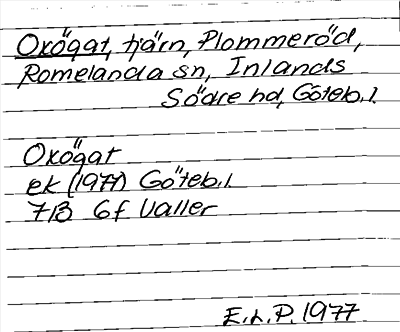 Oxögat, tjärn, Plommeröd,
Romelanda sn, Inlands
Södre hd, Göteb.l.
Oxögat
ek (1977) Göteb.l.
7B 6f Valler
E.L.P. 1977